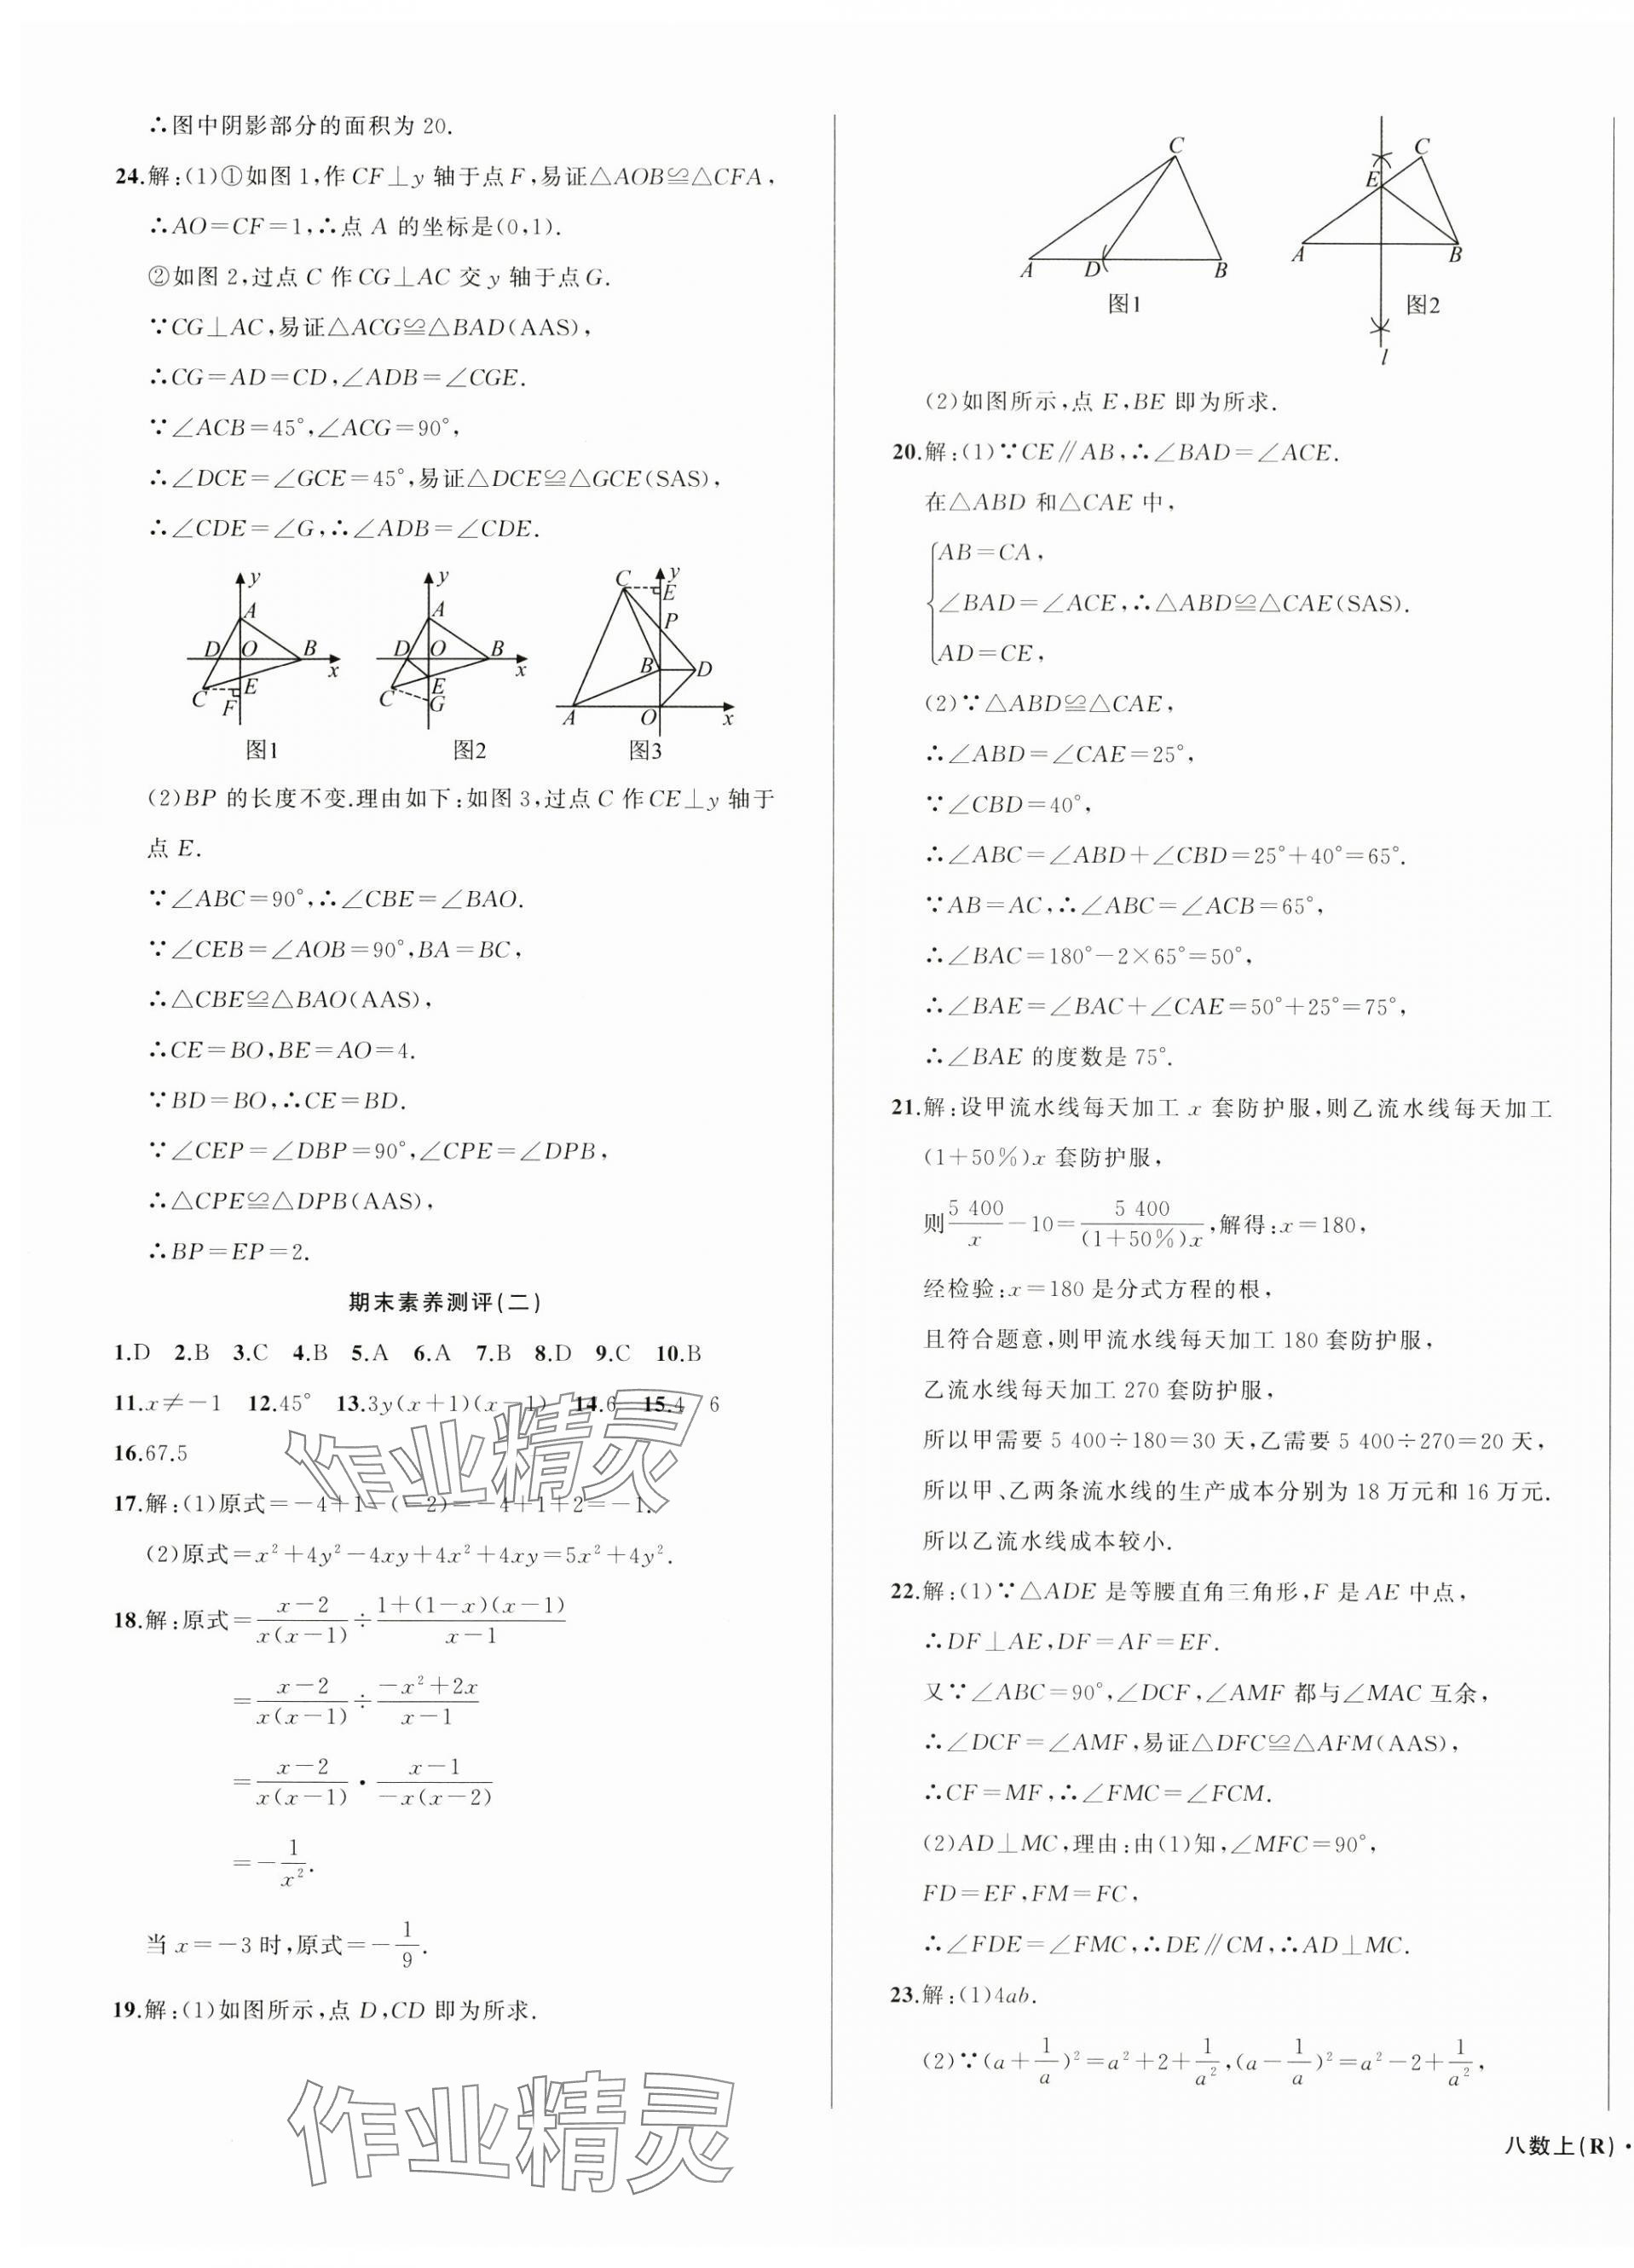 ∴图中阴影部分的面积为 20.
24.解:(1)①如图 1,作 CF⊥y 轴于点 F,易证△AOB≌△CFA,
∴AO=CF=1,∴点 A 的坐标是(0,1).
②如图 2,过点 C 作 CG⊥AC 交 y 轴于点 G.
∵CG⊥AC,易证△ACG≌△BAD(AAS),
∴CG=AD=CD,∠ADB=∠CGE.
∵∠ACB=45°,∠ACG=90°,
∴∠DCE=∠GCE=45°,易证△DCE≌△GCE(SAS),
∴∠CDE=∠G,∴∠ADB=∠CDE.
y A D O B x C E F
图1
y A D O B x C E G
图2
C y E P B D A O x
图3
(2)BP 的长度不变.理由如下:如图 3,过点 C 作 CE⊥y 轴于
点 E.
∵∠ABC=90°,∴∠CBE=∠BAO.
∵∠CEB=∠AOB=90°,BA=BC,
∴△CBE≌△BAO(AAS),
∴CE=BO,BE=AO=4.
∵BD=BO,∴CE=BD.
∵∠CEP=∠DBP=90°,∠CPE=∠DPB,
∴△CPE≌△DPB(AAS),
∴BP=EP=2.
期末素养测评(二)
1.D 2.B 3.C 4.B 5.A 6.A 7.B 8.D 9.C 10.B
11.x≠-1 12.45° 13.3y(x+1)(x-1) 14.6 15.4 6
16.67.5
17.解:(1)原式=-4+1-(-2)=-4+1+2=-1.
(2)原式=x²+4y²-4xy+4x²+4xy=5x²+4y².
18.解:原式=(x-2)/(x(x-1))÷(1+(1-x)(x-1))/(x-1)
=(x-2)/(x(x-1))÷(-x²+2x)/(x-1)
=(x-2)/(x(x-1))·(x-1)/(-x(x-2))
=-1/x².
当 x=-3 时,原式=-1/9.
19.解:(1)如图所示,点 D,CD 即为所求.
作业精灵
作业精灵
C A D B
图1
C E A B l
图2
(2)如图所示,点 E,BE 即为所求.
20.解:(1)∵CE∥AB,∴∠BAD=∠ACE.
在△ABD 和△CAE 中,
AB=CA,
∠BAD=∠ACE,∴△ABD≌△CAE(SAS).
AD=CE,
(2)∵△ABD≌△CAE,
∴∠ABD=∠CAE=25°,
∵∠CBD=40°,
∴∠ABC=∠ABD+∠CBD=25°+40°=65°.
∵AB=AC,∴∠ABC=∠ACB=65°,
∴∠BAC=180°-2×65°=50°,
∴∠BAE=∠BAC+∠CAE=50°+25°=75°,
∴∠BAE 的度数是 75°.
21.解:设甲流水线每天加工 x 套防护服,则乙流水线每天加工
(1+50%)x 套防护服,
则5 400/x-10=5 400/((1+50%)x),解得:x=180,
经检验:x=180 是分式方程的根,
且符合题意,则甲流水线每天加工 180 套防护服,
乙流水线每天加工 270 套防护服,
所以甲需要 5 400÷180=30 天,乙需要 5 400÷270=20 天,
所以甲、乙两条流水线的生产成本分别为 18 万元和 16 万元.
所以乙流水线成本较小.
22.解:(1)∵△ADE 是等腰直角三角形,F 是 AE 中点,
∴DF⊥AE,DF=AF=EF.
又∵∠ABC=90°,∠DCF,∠AMF 都与∠MAC 互余,
∴∠DCF=∠AMF,易证△DFC≌△AFM(AAS),
∴CF=MF,∴∠FMC=∠FCM.
(2)AD⊥MC,理由:由(1)知,∠MFC=90°,
FD=EF,FM=FC,
∴∠FDE=∠FMC,∴DE∥CM,∴AD⊥MC.
23.解:(1)4ab.
(2)∵(a+1/a)²=a²+2+1/a²,(a-1/a)²=a²-2+1/a²,
八数上(R)·